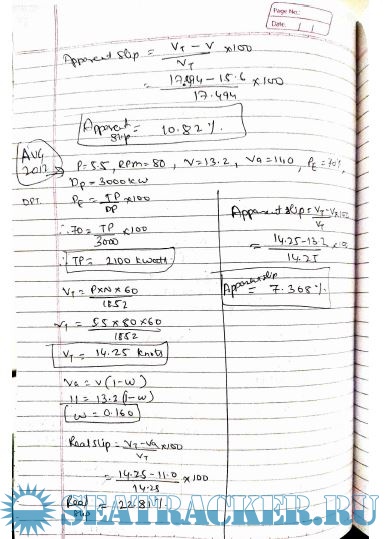 Page No.:
Date.
Apparent slip = VT - V / VT x100
= 17.494 - 15.6 / 17.494 x100
Apparent slip = 10.82%
Aug 2012
P=5.5, RPM=80, V=13.2, Va=11.0, PE=70%,
DP=3000kW
DPT. PE = TP/DP x100
∴ 70 = TP/3000 x100
∴ TP = 2100 kwatt
VT = P×N×60 / 1852
VT = 5.5 × 80 × 60 / 1852
VT = 14.25 knots
Va = V(1-w)
11 = 13.2(1-w)
w = 0.160
Real slip = VT - Va / VT x100
= 14.25 - 11.0 / 14.25 x100
Real slip = 22.81%
Apparent slip = VT - V / VT x100
= 14.25 - 13.2 / 14.25 x100
Apparent slip = 7.368%
SEATRACKER.RU